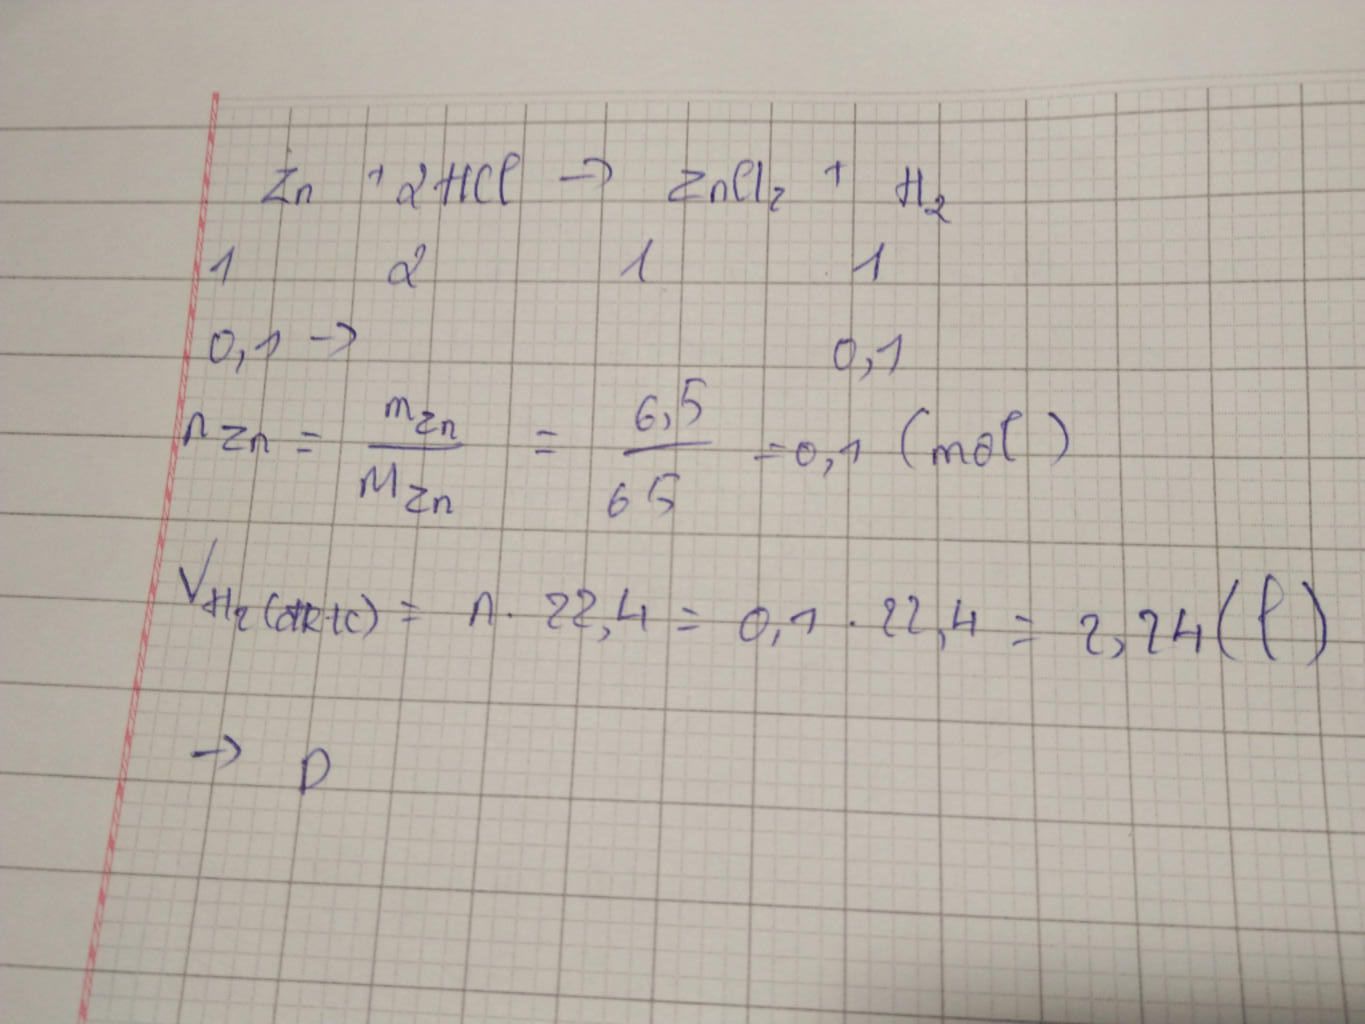 Zn + 2HCl → ZnCl₂ + H₂
1 2 1 1
0,1 → 0,1
nZn = mZn / MZn = 6,5 / 65 = 0,1 (mol)
VH₂(đktc) = n . 22,4 = 0,1 . 22,4 = 2,24 (l)
→ D